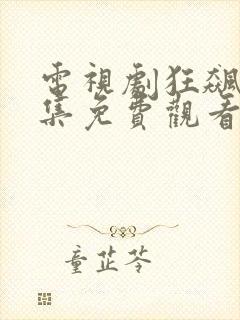 電視劇狂飆
集免費觀看
童芷苓